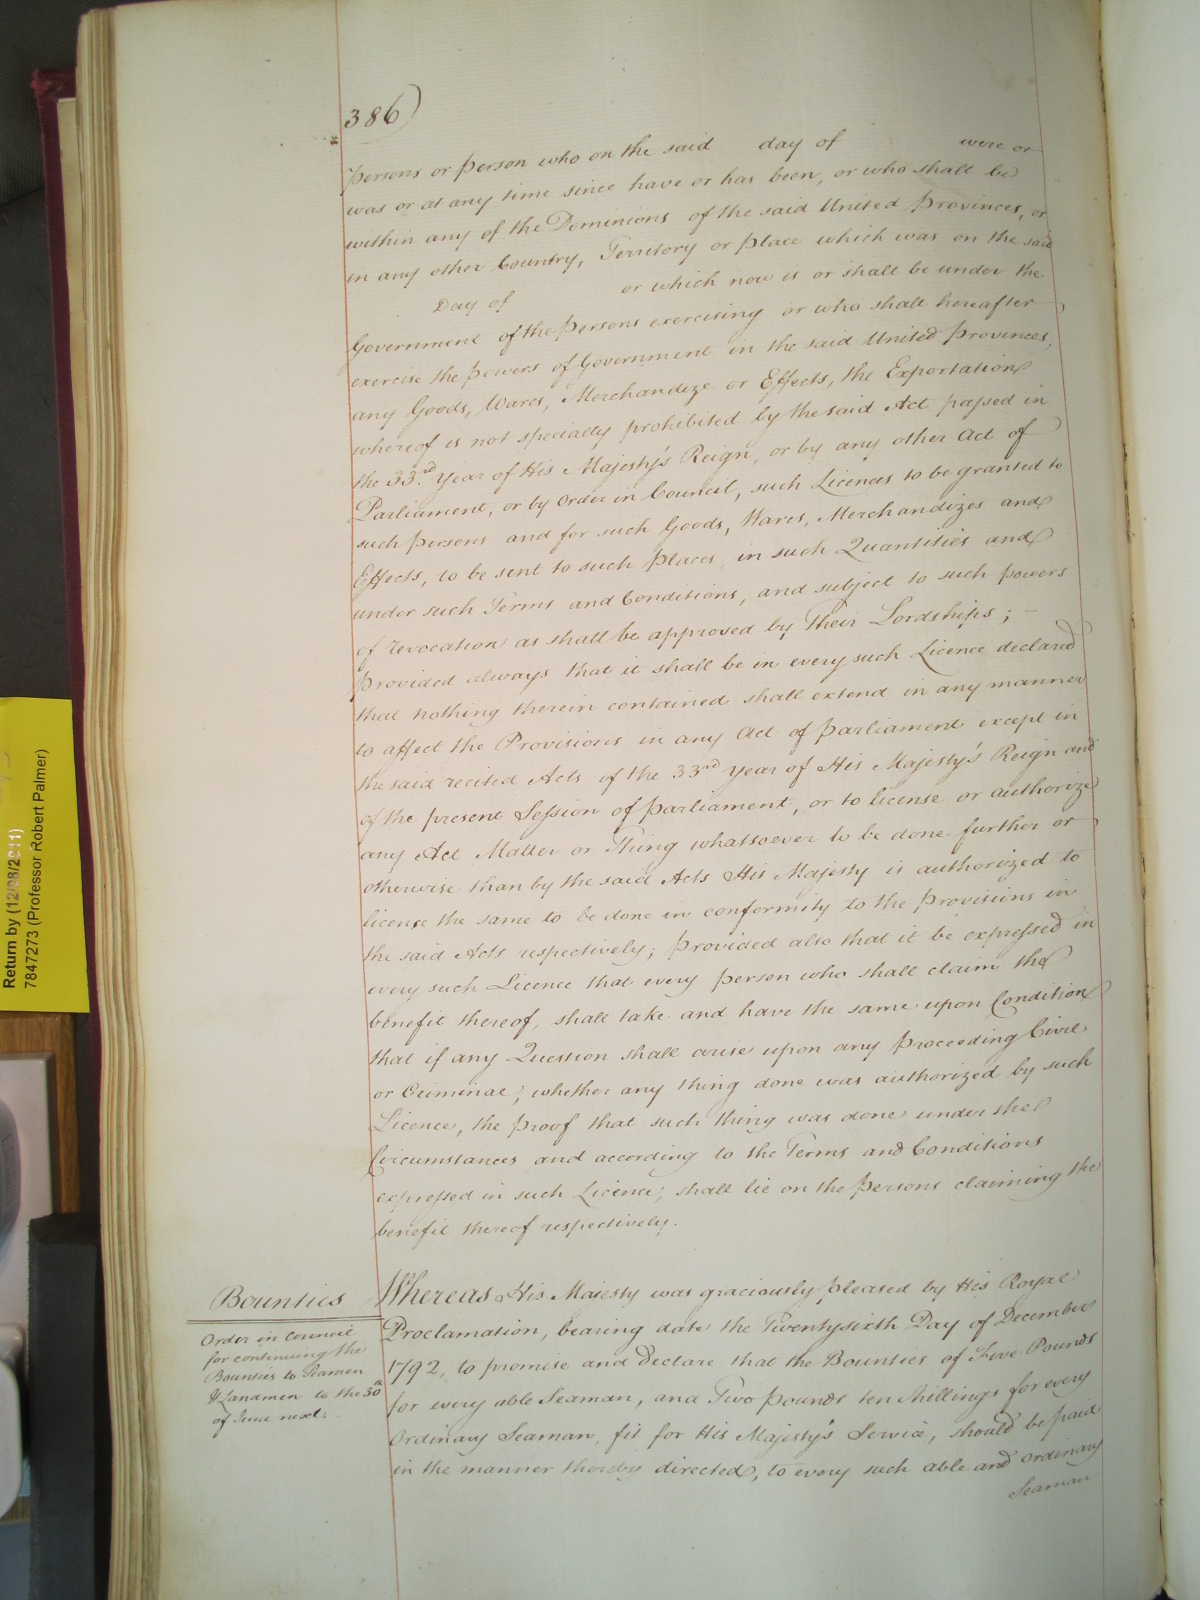 386)
Persons or Person who on the said day of were or
was or at any time since have or has been, or who shall be
within any of the Dominions of the said United Provinces, or
in any other Country, Territory or Place which was on the said
Day of or which now is or shall be under the
Government of the Persons exercising or who shall hereafter
exercise the Powers of Government in the said United Provinces,
any Goods, Wares, Merchandize or Effects, the Exportation
whereof is not specially prohibited by the said Act passed in
the 33rd Year of His Majesty's Reign, or by any other Act of
Parliament, or by Order in Council, such Licences to be granted to
such Persons and for such Goods, Wares, Merchandizes and
Effects, to be sent to such Places, in such Quantities and
under such Terms and Conditions, and subject to such powers
of revocation as shall be approved by Their Lordships;
Provided always that it shall be in every such Licence declared
that nothing therein contained shall extend in any manner
to affect the Provisions in any Act of Parliament except in
the said recited Acts of the 33rd Year of His Majesty's Reign and
of the present Session of Parliament, or to license or authorize
any Act Matter or Thing whatsoever to be done further or
otherwise than by the said Acts His Majesty is authorized to
license the same to be done in conformity to the Provisions in
the said Acts respectively; Provided also that it be expressed in
every such Licence that every Person who shall claim the
benefit thereof, shall take and have the same upon Condition
that if any Question shall arise upon any Proceeding Civil
or Criminal, whether any thing done was authorized by such
Licence, the Proof that such thing was done under the
Circumstances and according to the Terms and Conditions
expressed in such Licence; shall lie on the Persons claiming the
benefit thereof respectively.
Bounties
Order in Council
for continuing the
Bounties to Seamen
& Landmen to the 30th
of June next.
Whereas His Majesty was graciously pleased by His Royal
Proclamation, bearing date the Twentysixth Day of December
1792, to promise and declare that the Bounties of Five Pounds
for every able Seaman, and Two Pounds ten Shillings for every
Ordinary Seaman, fit for His Majesty's Service, should be paid
in the manner thereby directed, to every such able and ordinary
Seaman
Return by (12/08/2011)
7847273 (Professor Robert Palmer)